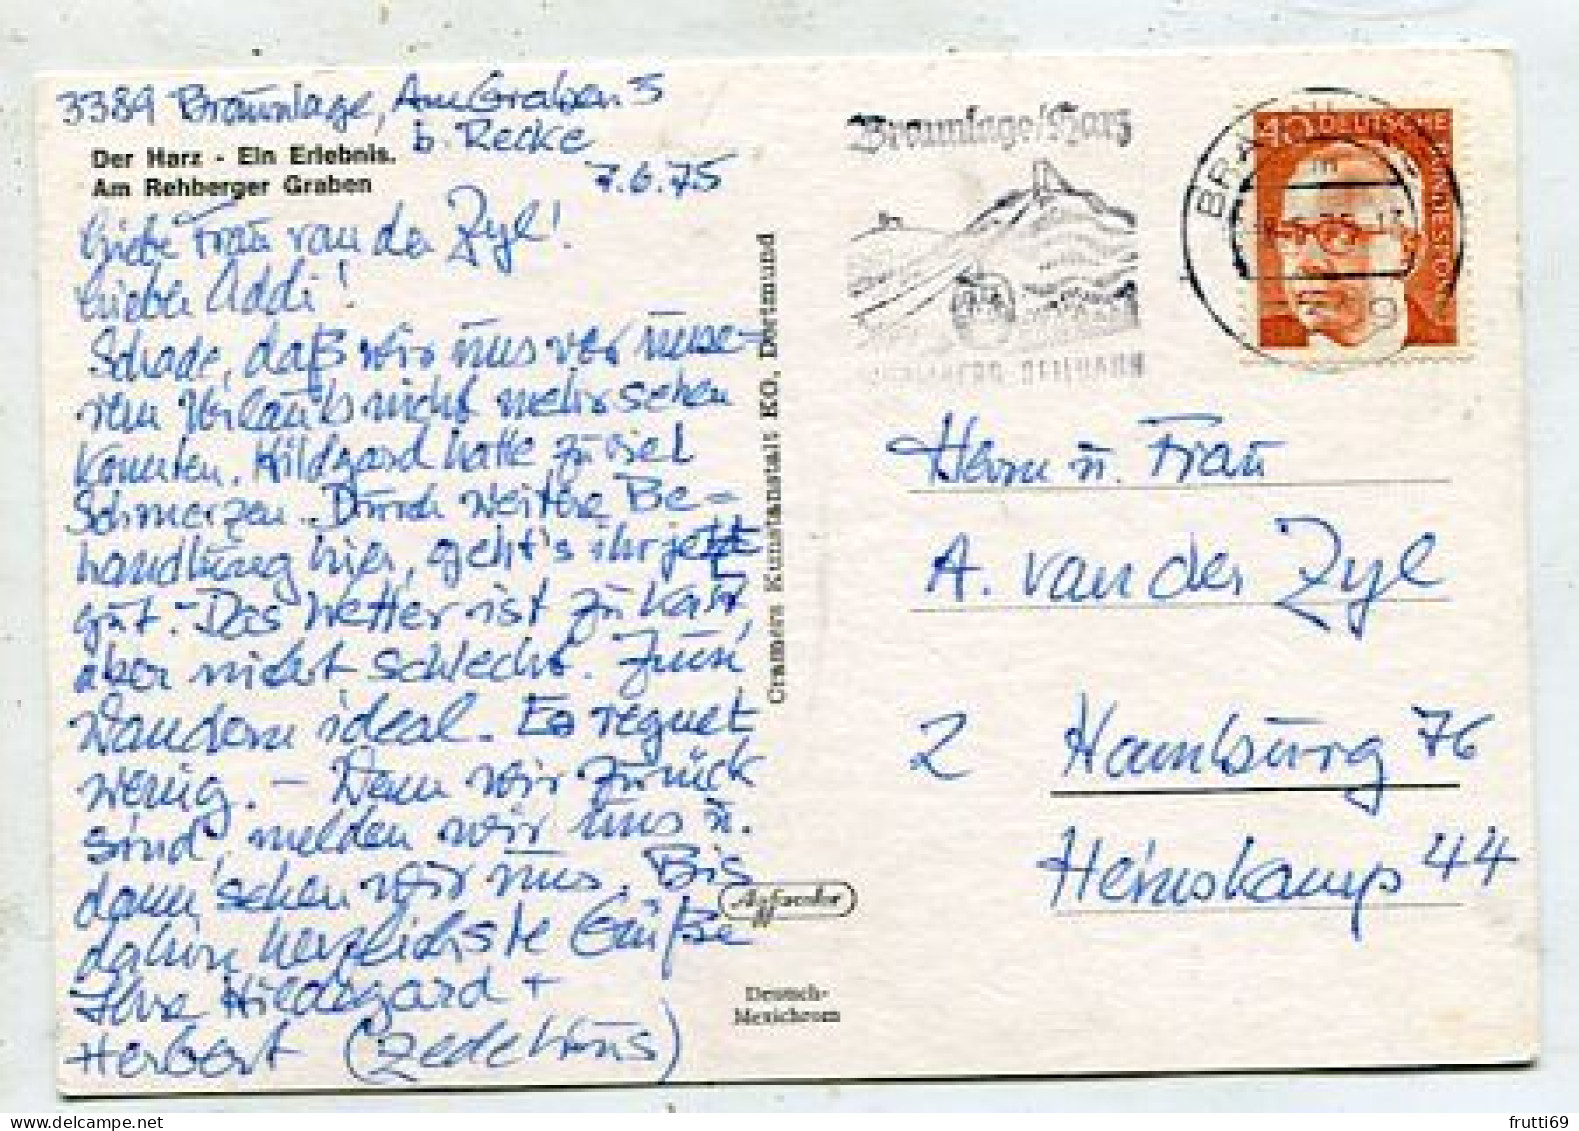 3389 Braunlage, Am Graben 3
b. Recke
7.6.75
Der Harz - Ein Erlebnis.
Am Rehberger Graben
Liebe Frau van der Zyl!
Lieber Addi!
Schade, daß wir uns vor unse-
rem Urlaub nicht mehr sehen
konnten. Hildgard hatte zu viel
Schmerzen. Durch weitere Be-
handlung hier, geht's ihr jetzt
gut. - Das Wetter ist zu kalt,
aber nicht schlecht. Zum
Wandern ideal. Es regnet
wenig. - Wenn wir zurück
sind, melden wir uns u.
dann sehen wir uns. Bis
dahin herzlichste Grüße
Ihre Hildegard +
Herbert (
Cramers Kunstanstalt KG, Dortmund
Agfacolor
Deutsch-
Mexichrom
Braunlage/Harz
SEILBAHN
40 DEUTSCHE BUNDESPOST
Herrn u. Frau
A. van der Zyl
2 Hamburg 76
Heinskamp 44
frutti69